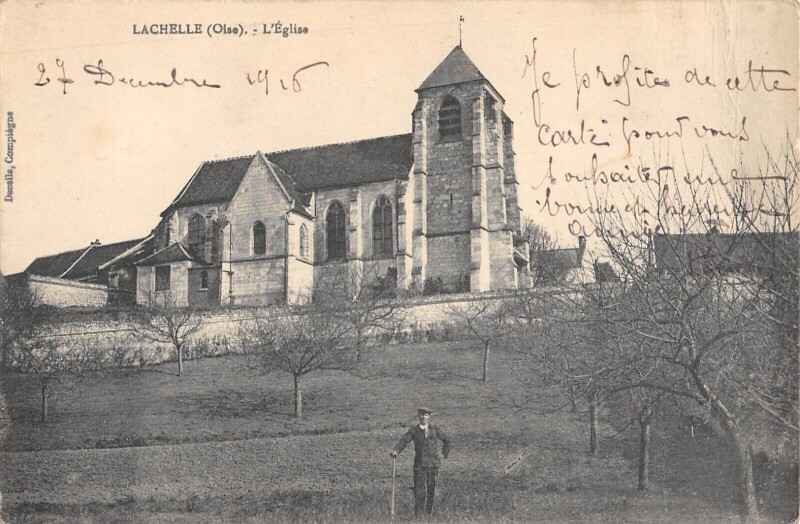 LACHELLE (Oise). - L'Église
27 Décembre 1916
Je profite de cette
carte pour vous
souhaiter une
bonne et heureuse
année
Ducelle, Compiègne